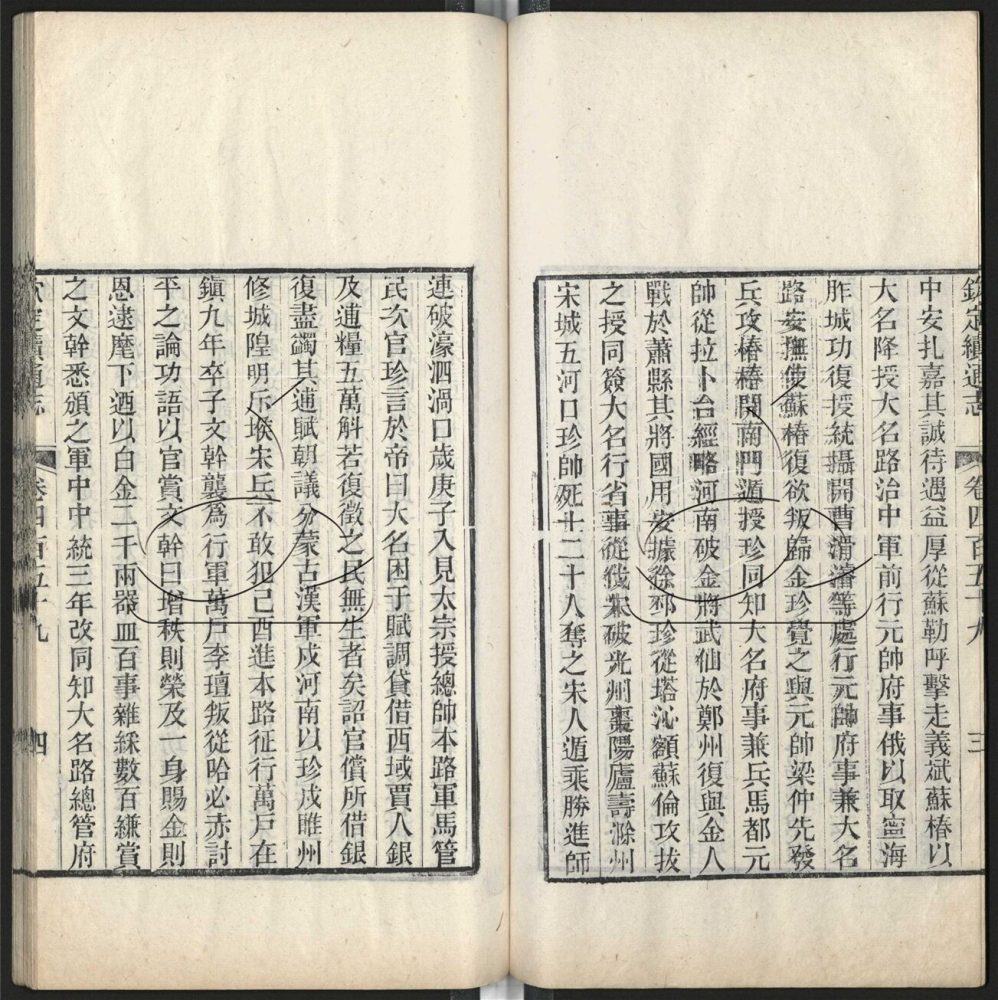 欽定續通志 卷四百五十九 三
中安扎嘉其誠待遇益厚從蘇勒呼擊走義斌蘇椿以
大名降授大名路治中軍前行元帥府事俄以取寧海
胙城功復授統攝開曹滑濬等處行元帥府事兼大名
路安撫使蘇椿復欲叛歸金珍覺之與元帥梁仲先發
兵攻椿椿開南門遁授珍同知大名府事兼兵馬都元
帥從拉卜台經略河南破金將武仙於鄭州復與金人
戰於蕭縣其將國用安據徐邳珍從塔沁額蘇倫攻拔
之授同簽大名行省事從伐宋破光州棗陽廬壽滁州
宋城五河口珍帥死士二十人奪之宋人遁乘勝進師
連破濠泗渦口歲庚子入見太宗授總帥本路軍馬管
民次官珍言於帝曰大名困于賦調貸借西域賈人銀
及逋糧五萬斛若復徵之民無生者矣詔官償所借銀
復盡蠲其逋賦朝議分蒙古漢軍戍河南以珍戍睢州
修城隍明斥堠宋兵不敢犯己酉進本路征行萬戶在
鎮九年卒子文幹襲爲行軍萬戶李璮叛從哈必赤討
平之論功語以官賞文幹曰增秩則榮及一身賜金則
恩逮麾下迺以白金二千兩器皿百事雜綵數百縑賞
之文幹悉頒之軍中中統三年改同知大名路總管府
欽定續通志 卷四百五十九 四